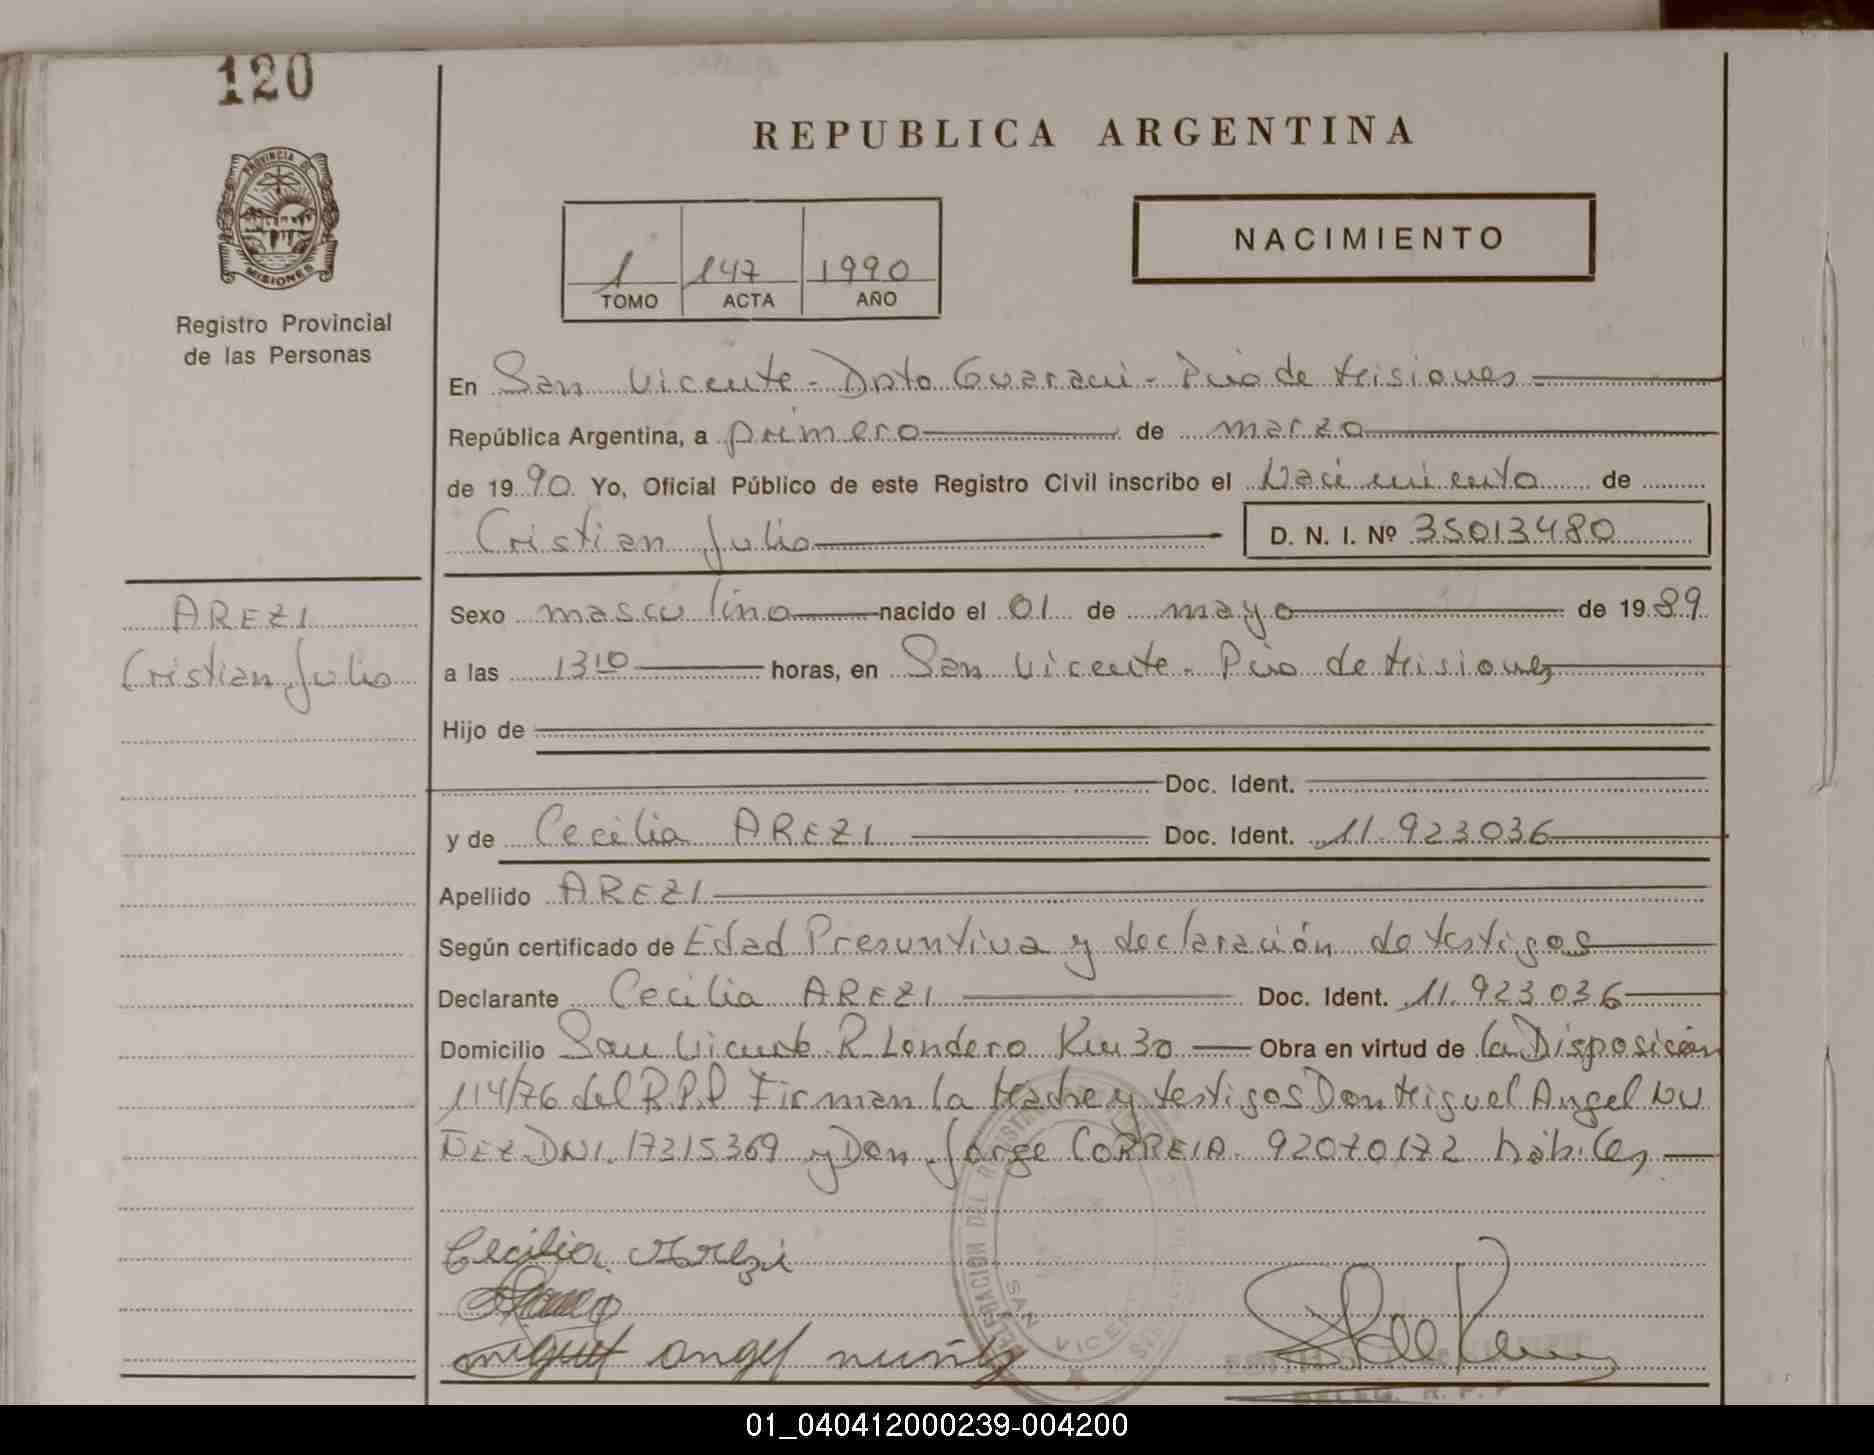 120
REPUBLICA ARGENTINA
PROVINCIA DE
MISIONES
Registro Provincial
de las Personas
1 147 1990
TOMO ACTA AÑO
NACIMIENTO
En San Vicente - Dpto Guarani - Pcia de Misiones
República Argentina, a primero de marzo
de 1990 Yo, Oficial Público de este Registro Civil inscribo el Nacimiento de
Cristian Julio D. N. I. Nº 35013480
AREZI
Cristian Julio
Sexo masculino nacido el 01 de mayo de 1989
a las 1310 horas, en San Vicente - Pcia de Misiones
Hijo de
Doc. Ident.
y de Cecilia AREZI Doc. Ident. 11.923036
Apellido AREZI
Según certificado de Edad Presuntiva y declaración de testigos
Declarante Cecilia AREZI Doc. Ident. 11.923036
Domicilio San Vicente R. Londero Km 30 Obra en virtud de la Disposición
114/76 del R.P.P Firman la Madre y testigos Don Miguel Angel NU
ÑEZ DNI. 17215369 y Don Jorge CORREIA. 92070172 hábiles
Cecilia Arezi
miguel angel nuñez
DELEGACION DEL REGISTRO
SAN VICENTE
DELEG. R. P. P
01_040412000239-004200